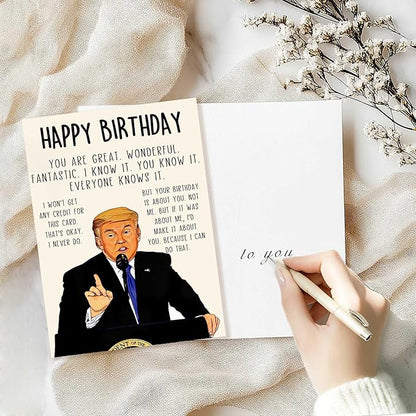 HAPPY BIRTHDAY
YOU ARE GREAT. WONDERFUL.
FANTASTIC. I KNOW IT. YOU KNOW IT.
EVERYONE KNOWS IT.
I WON'T GET
ANY CREDIT FOR
THIS CARD.
THAT'S OKAY.
I NEVER DO.
BUT YOUR BIRTHDAY
IS ABOUT YOU. NOT
ME. BUT IF IT WAS
ABOUT ME, I'D
MAKE IT ABOUT
YOU. BECAUSE I CAN
DO THAT.
to you